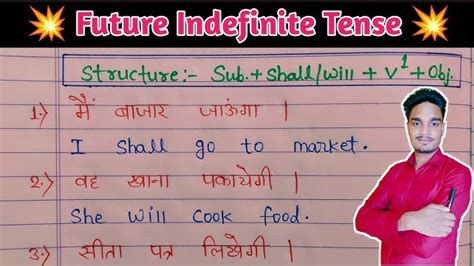 💥 Future Indefinite Tense 💥
Structure:- Sub. + Shall/will + V¹ + Obj.
1.) मैं बाजार जाऊंगा |
I Shall go to market.
2.) वह खाना पकायेगी |
She will Cook food.
3.) सीता पत्र लिखेगी |